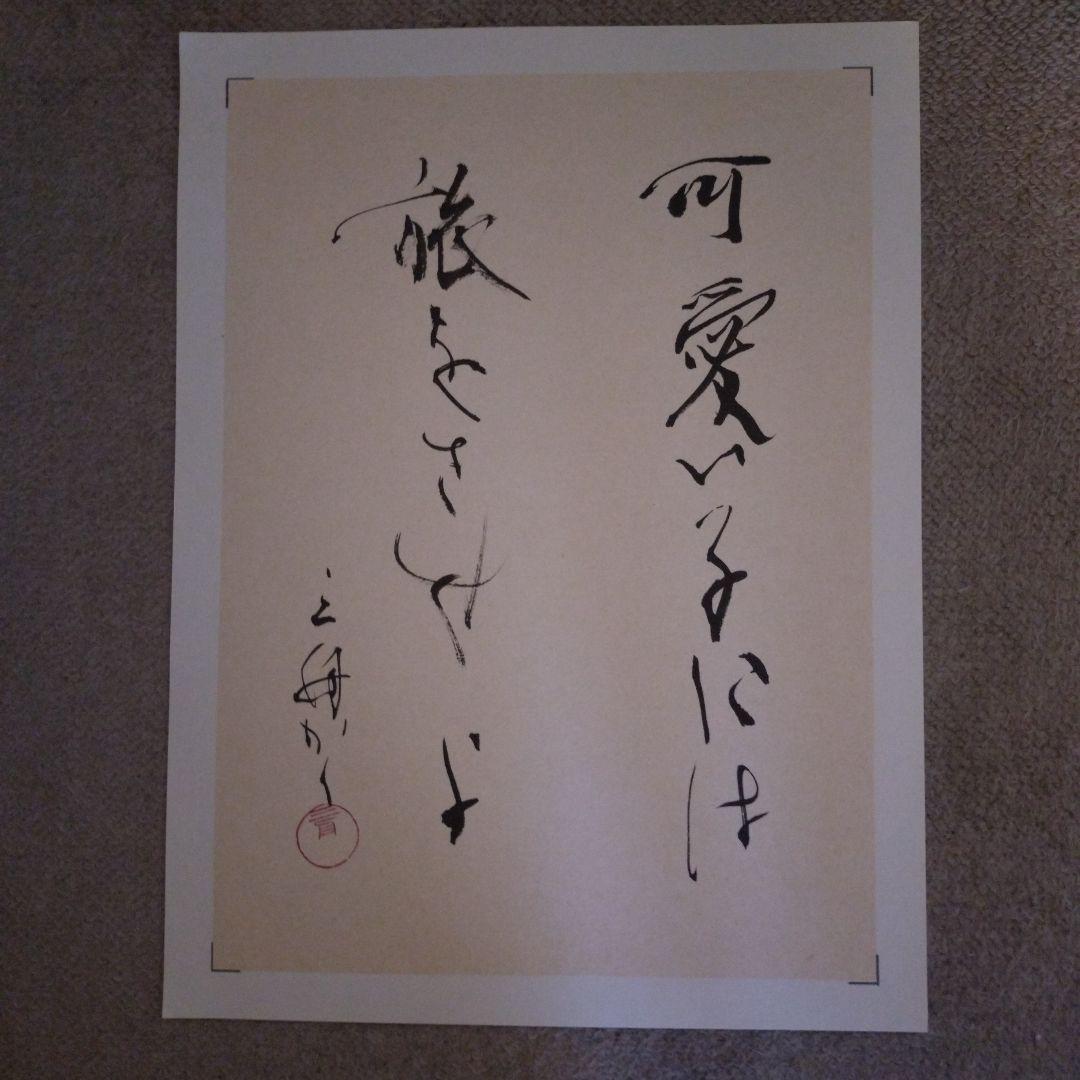 可愛い子には
旅をさせよ
三舟かく